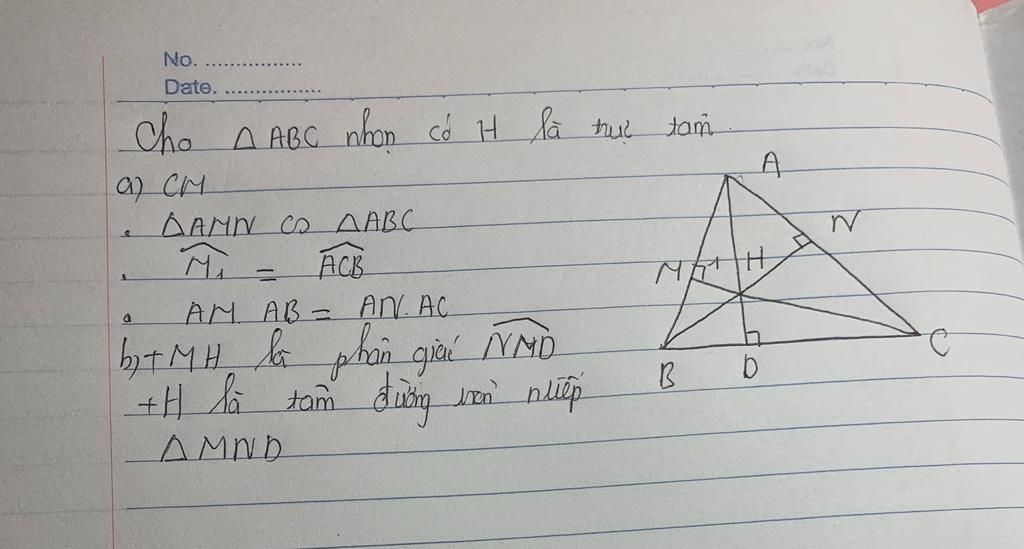 No. ................
Date. ................
Cho △ABC nhọn có H là trực tâm.
a) CM
. △AMN ∽ △ABC
. M̂₁ = ÂCB
. AM. AB = AN. AC
b) + MH là phân giác N̂MD
+ H là tâm đường tròn ntiếp
△MND
A
N
M 1 H
C
B D